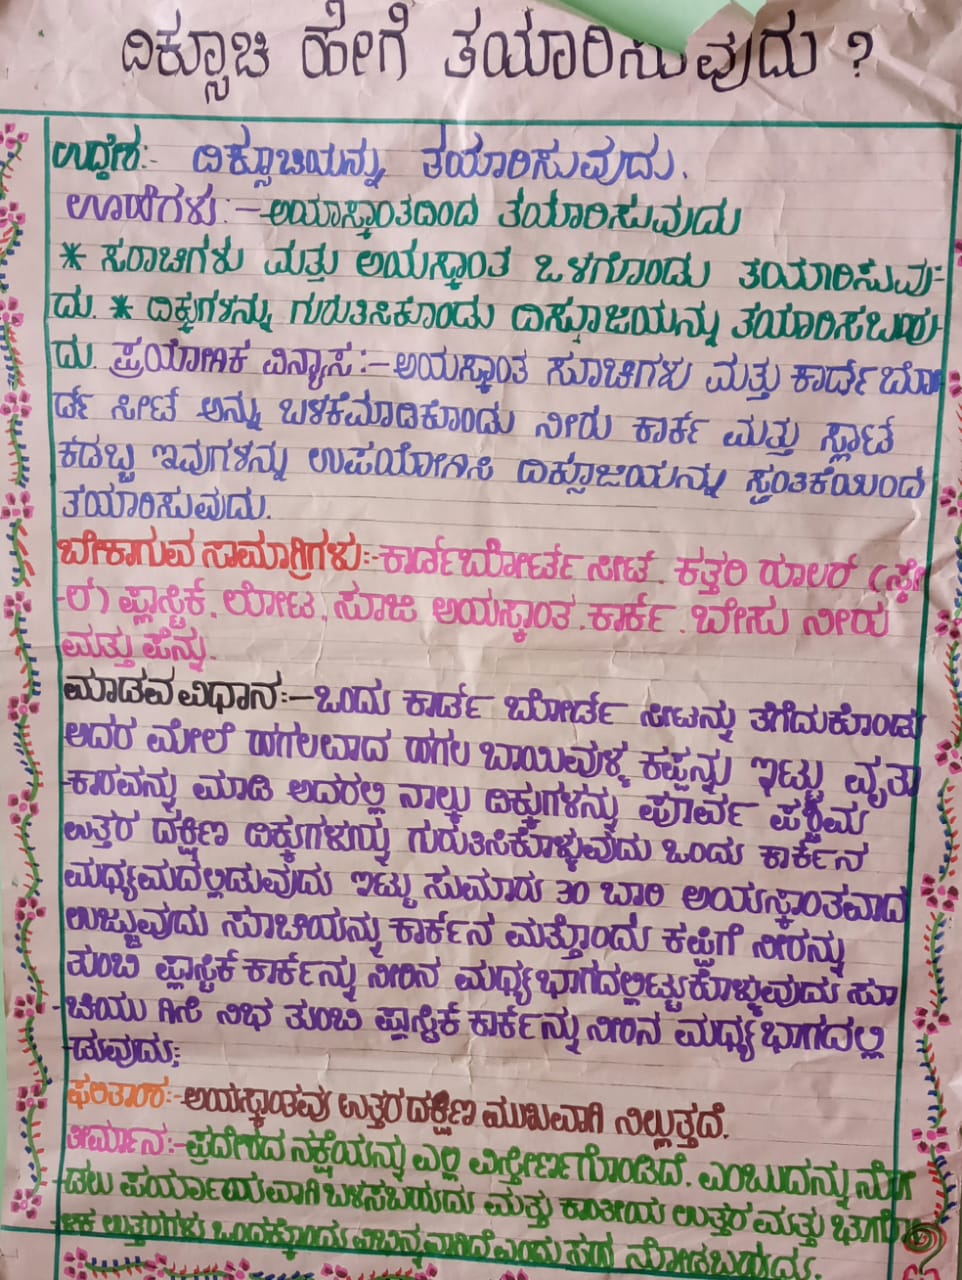 ದಿಕ್ಸೂಚಿ ಹೇಗೆ ತಯಾರಿಸುವುದು ?
ಉದ್ದೇಶ:- ದಿಕ್ಸೂಚಿಯನ್ನು ತಯಾರಿಸುವುದು.
ಊಹೆಗಳು:- ಅಯಾಸ್ಕಾಂತದಿಂದ ತಯಾರಿಸುವುದು
* ಸರಾಚಿಗಳು ಮತ್ತು ಅಯಸ್ಕಾಂತ ಒಳಗೊಂಡು ತಯಾರಿಸುವು-
ದು. * ದಿಕ್ಕುಗಳನ್ನು ಗುರುತಿಸಿಕೊಂಡು ದಿಸ್ಕೂಜಿಯನ್ನು ತಯಾರಿಸಬಹು
ದು. ಪ್ರಯೋಗಿಕ ವಿನ್ಯಾಸ:- ಅಯಸ್ಕಾಂತ ಸೂಚಿಗಳು ಮತ್ತು ಕಾರ್ಡ್ ಬೋ
ರ್ಡ್ ಸೀಟ್ ಅನ್ನು ಬಳಕೆಮಾಡಿಕೊಂಡು ನೀರು ಕಾರ್ಕ್ ಮತ್ತು ಸ್ಲಾಟ್
ಕಡಬ್ಬ ಇವುಗಳನ್ನು ಉಪಯೋಗಿಸಿ ದಿಕ್ಸೂಜಿಯನ್ನು ಸ್ವಂತಿಕೆಯಿಂದ
ತಯಾರಿಸುವುದು.
ಬೇಕಾಗುವ ಸಾಮಾಗ್ರಿಗಳು:- ಕಾರ್ಡ್ ಬೋರ್ಡ್ ಸೀಟ್. ಕತ್ತರಿ ರೂಲರ್ (ಸ್ಕೇ
-ಲ್) ಪ್ಲಾಸ್ಟಿಕ್. ಲೋಟ. ಸೂಜಿ ಅಯಸ್ಕಾಂತ. ಕಾರ್ಕ್. ಬೇಸು ನೀರು
ಮತ್ತು ಪೆನ್ನು.
ಮಾಡವ ವಿಧಾನ:- ಒಂದು ಕಾರ್ಡ್ ಬೋರ್ಡ್ ಸೀಟನ್ನು ತೆಗೆದುಕೊಂಡು
ಅದರ ಮೇಲೆ ಹಗಲವಾದ ಹಗಲ ಬಾಯಿವುಳ್ಳ ಕಪ್ಪನ್ನು ಇಟ್ಟು ವೃತಾ
-ಕಾರವನ್ನು ಮಾಡಿ ಅದರಲ್ಲಿ ನಾಲ್ಕು ದಿಕ್ಕುಗಳನ್ನು ಪೂರ್ವ ಪಶ್ಚಿಮ
ಉತ್ತರ ದಕ್ಷಿಣ ದಿಕ್ಕುಗಳನ್ನು ಗುರುತಿಸಿಕೊಳ್ಳುವುದು ಒಂದು ಕಾರ್ಕ್‌ನ
ಮಧ್ಯಮದಲ್ಲಿಡುವುದು ಇಟ್ಟು ಸುಮಾರು 30 ಬಾರಿ ಅಯಸ್ಕಾಂತವಾದ
ಉಜ್ಜುವುದು ಸೂಚಿಯನ್ನು ಕಾರ್ಕ್‌ನ ಮತ್ತೊಂದು ಕಪ್ಪಿಗೆ ನೀರನ್ನು
ತುಂಬಿ ಪ್ಲಾಸ್ಟಿಕ್ ಕಾರ್ಕ್‌ನ್ನು ನೀರಿನ ಮಧ್ಯಭಾಗದಲ್ಲಿಟ್ಟುಕೊಳ್ಳುವುದು ಸೂ
ಚಿಯು ತುಂಬಿ ಪ್ಲಾಸ್ಟಿಕ್ ಕಾರ್ಕ್‌ನ್ನು ನೀರಿನ ಮಧ್ಯಭಾಗದಲ್ಲಿ
-ಡುವುದು;
ಫಲಿತಾಂಶ:- ಅಯಸ್ಕಾಂತವು ಉತ್ತರ ದಕ್ಷಿಣ ಮುಖವಾಗಿ ನಿಲ್ಲುತ್ತದೆ.
ತೀರ್ಮಾನ:- ಪ್ರದೇಶದ ನಕ್ಷೆಯನ್ನು ಎಲ್ಲಿ ವಿಸ್ತೀರ್ಣಗೊಂಡಿದೆ. ಎಂಬುದನ್ನು ನೋ
-ಡಲು ಪರ್ಯಾಯವಾಗಿ ಬಳಸಬಹುದು ಮತ್ತು ಕಾಂತೀಯ ಉತ್ತರ ಮತ್ತು ಭಾಗೋ
ಉತ್ತರಗಳು ಒಂದಕ್ಕೊಂದು ಎಂದು ಸಹ ನೋಡಬಹುದು.